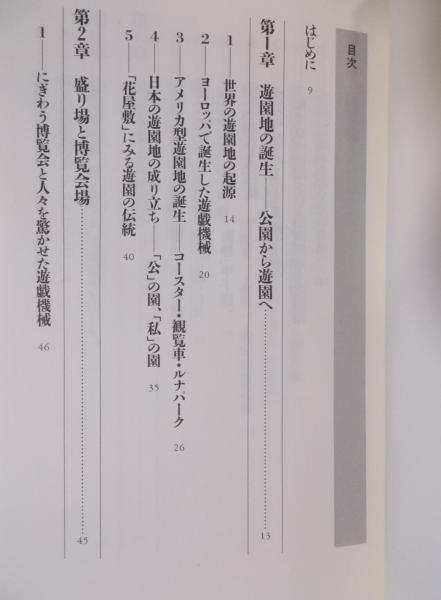 目次
はじめに 9
第1章 遊園地の誕生――公園から遊園へ……………………13
1――世界の遊園地の起源 14
2――ヨーロッパで誕生した遊戯機械 20
3――アメリカ型遊園地の誕生――コースター・観覧車・ルナパーク 26
4――日本の遊園地の成り立ち――「公」の園、「私」の園 35
5――「花屋敷」にみる遊園の伝統 40
第2章 盛り場と博覧会場……………………45
1――にぎわう博覧会と人々を驚かせた遊戯機械 46